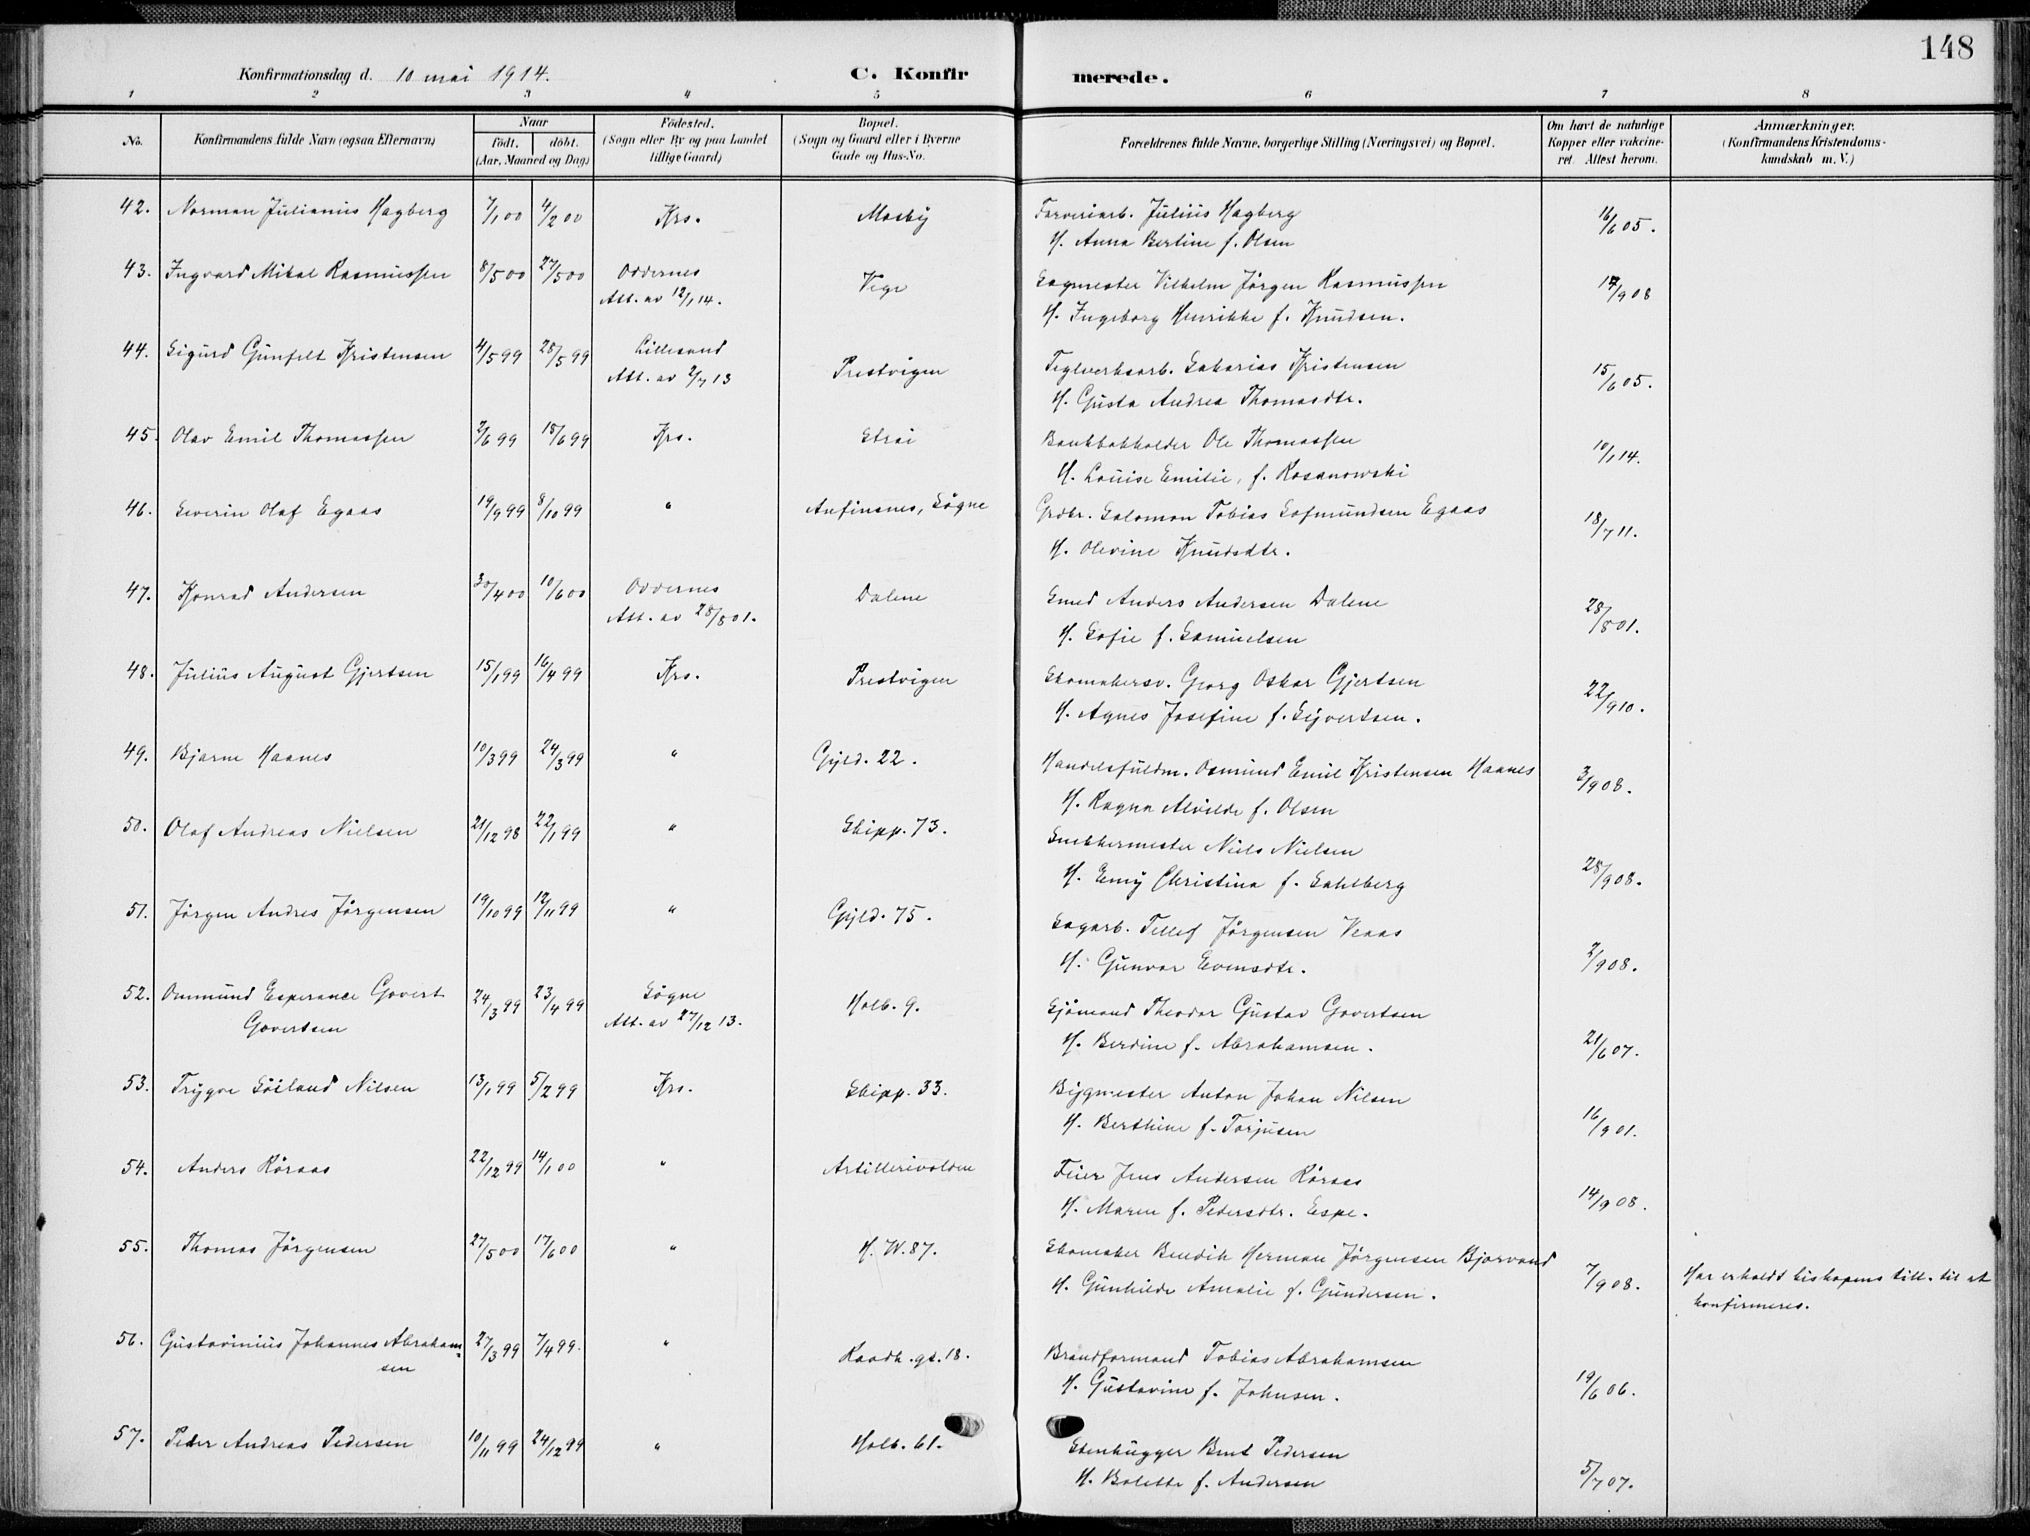 148
Konfirmationsdag d. 10 mai 1914. C. Konfirmerede.
1 2 3 4 5 6 7 8
No. Konfirmandens fulde Navn (ogsaa Efternavn) Naar født. døbt. (Aar, Maaned og Dag) Fødested. (Sogn eller By og paa Landet tillige Gaard) Bopæl. (Sogn og Gaard eller i Byerne Gade og Hus-No. Forældrenes fulde Navne, borgerlige Stilling (Næringsvei) og Bopæl. Om havt de naturlige Kopper eller vakcineret. Attest herom. Anmærkninger. (Konfirmandens Kristendomskundskab m. V.)
42. Norman Julianius Hagberg 7/1 00 4/2 00 Krs. Mosby Farveriarb. Julius Hagberg 16/6 05.
H. Anna Bertine f. Olsen
43. Ingvard Mikal Rasmussen 8/5 00 27/5 00 Oddernes Vige Sagmester Vilhelm Jörgen Rasmussen 17/9 08
Att. av 12/1 14. H. Ingeborg Henrikke f. Knudsen.
44. Sigurd Gunfelt Kristensen 4/5 99 28/5 99 Lillesand Prestvigen Teglverksarb. Sakarias Kristensen 15/6 05.
Att. av 2/7 13 H. Gusta Andrea Thomasdtr.
45. Olav Emil Thomassen 2/6 99 18/6 99 Krs. Strai Bankbokholder Ole Thomassen 10/1 14.
H. Louise Emilie, f. Rosanowski
46. Severin Olaf Egaas 19/9 99 8/10 99 " Anfinsnes, Søgne Grdbr. Salomon Tobias Sofmundsen Egaas 18/7 11.
H. Olevine Knudsdtr.
47. Konrad Andersen 30/4 00 10/6 00 Oddernes Dalene Smed Anders Andersen Dalene 28/8 01.
Att. av 28/8 01. H. Sofie f. Samuelsen
48. Julius August Gjertsen 15/1 99 16/4 99 Krs. Prestvigen Skomakersv. Georg Oskar Gjertsen 22/9 10.
H. Agnes Josefine f. Syvertsen.
49. Bjarne Haanes 10/3 99 24/3 99 " Gyld. 22. Handelsfuldm. Osmund Emil Kristensen Haanes 3/9 08.
H. Ragna Alvilde f. Olsen
50. Olaf Andreas Nielsen 21/12 98 22/1 99 " Skipp. 73. Snekkermester Niels Nielsen 28/9 08.
H. Emy Christina f. Sahlberg
51. Jörgen Andres Jörgensen 19/10 99 12/11 99 " Gyld. 75. Sagarb. Tellef Jörgensen Veaas 2/9 08.
H. Gunvor Evensdtr.
52. Ommund Esperance Govert Govertsen 24/3 99 23/4 99 Søgne Holb. 9. Sjömand Theodor Gustav Govertsen 21/6 07.
Att. av 27/12 13. H. Berdine f. Abrahamsen.
53. Trygve Söiland Nilsen 13/1 99 5/2 99 Krs. Skipp. 33. Bygmester Anton Johan Nilsen 16/9 01.
H. Berthine f. Torjusen
54. Anders Röraas 22/12 99 14/1 00 " Artillerivolden Feier Jens Andersen Röraas 14/9 08.
H. Maren f. Pedersdtr. Espe.
55. Thomas Jörgensen 27/5 00 17/6 00 " H. W. 87. Skomaker Bendik Herman Jörgensen Bjorvand 7/9 08. Har erholdt biskopens till. til at
H. Gunhilde Amalie f. Gundersen. konfirmeres.
56. Gustavinius Johannes Abrahamsen 27/3 99 7/4 99. " Raadh. gt. 18. Brandformand Tobias Abrahamsen 19/6 06.
H. Gustavine f. Johnsen.
57. Peder Andreas Pedersen 10/11 99 24/12 99 " Holb. 61. Stenhugger Bent Pedersen 5/7 07.
H. Bolette f. Andersen